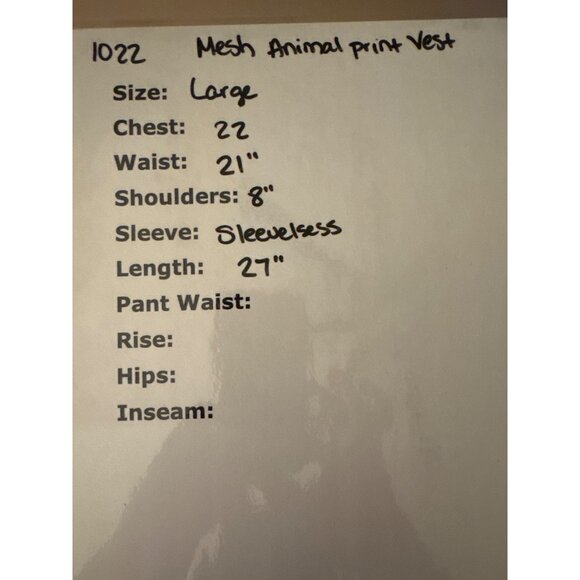 1022 Mesh Animal print Vest
Size: Large
Chest: 22
Waist: 21"
Shoulders: 8"
Sleeve: Sleevelsess
Length: 27"
Pant Waist:
Rise:
Hips:
Inseam: